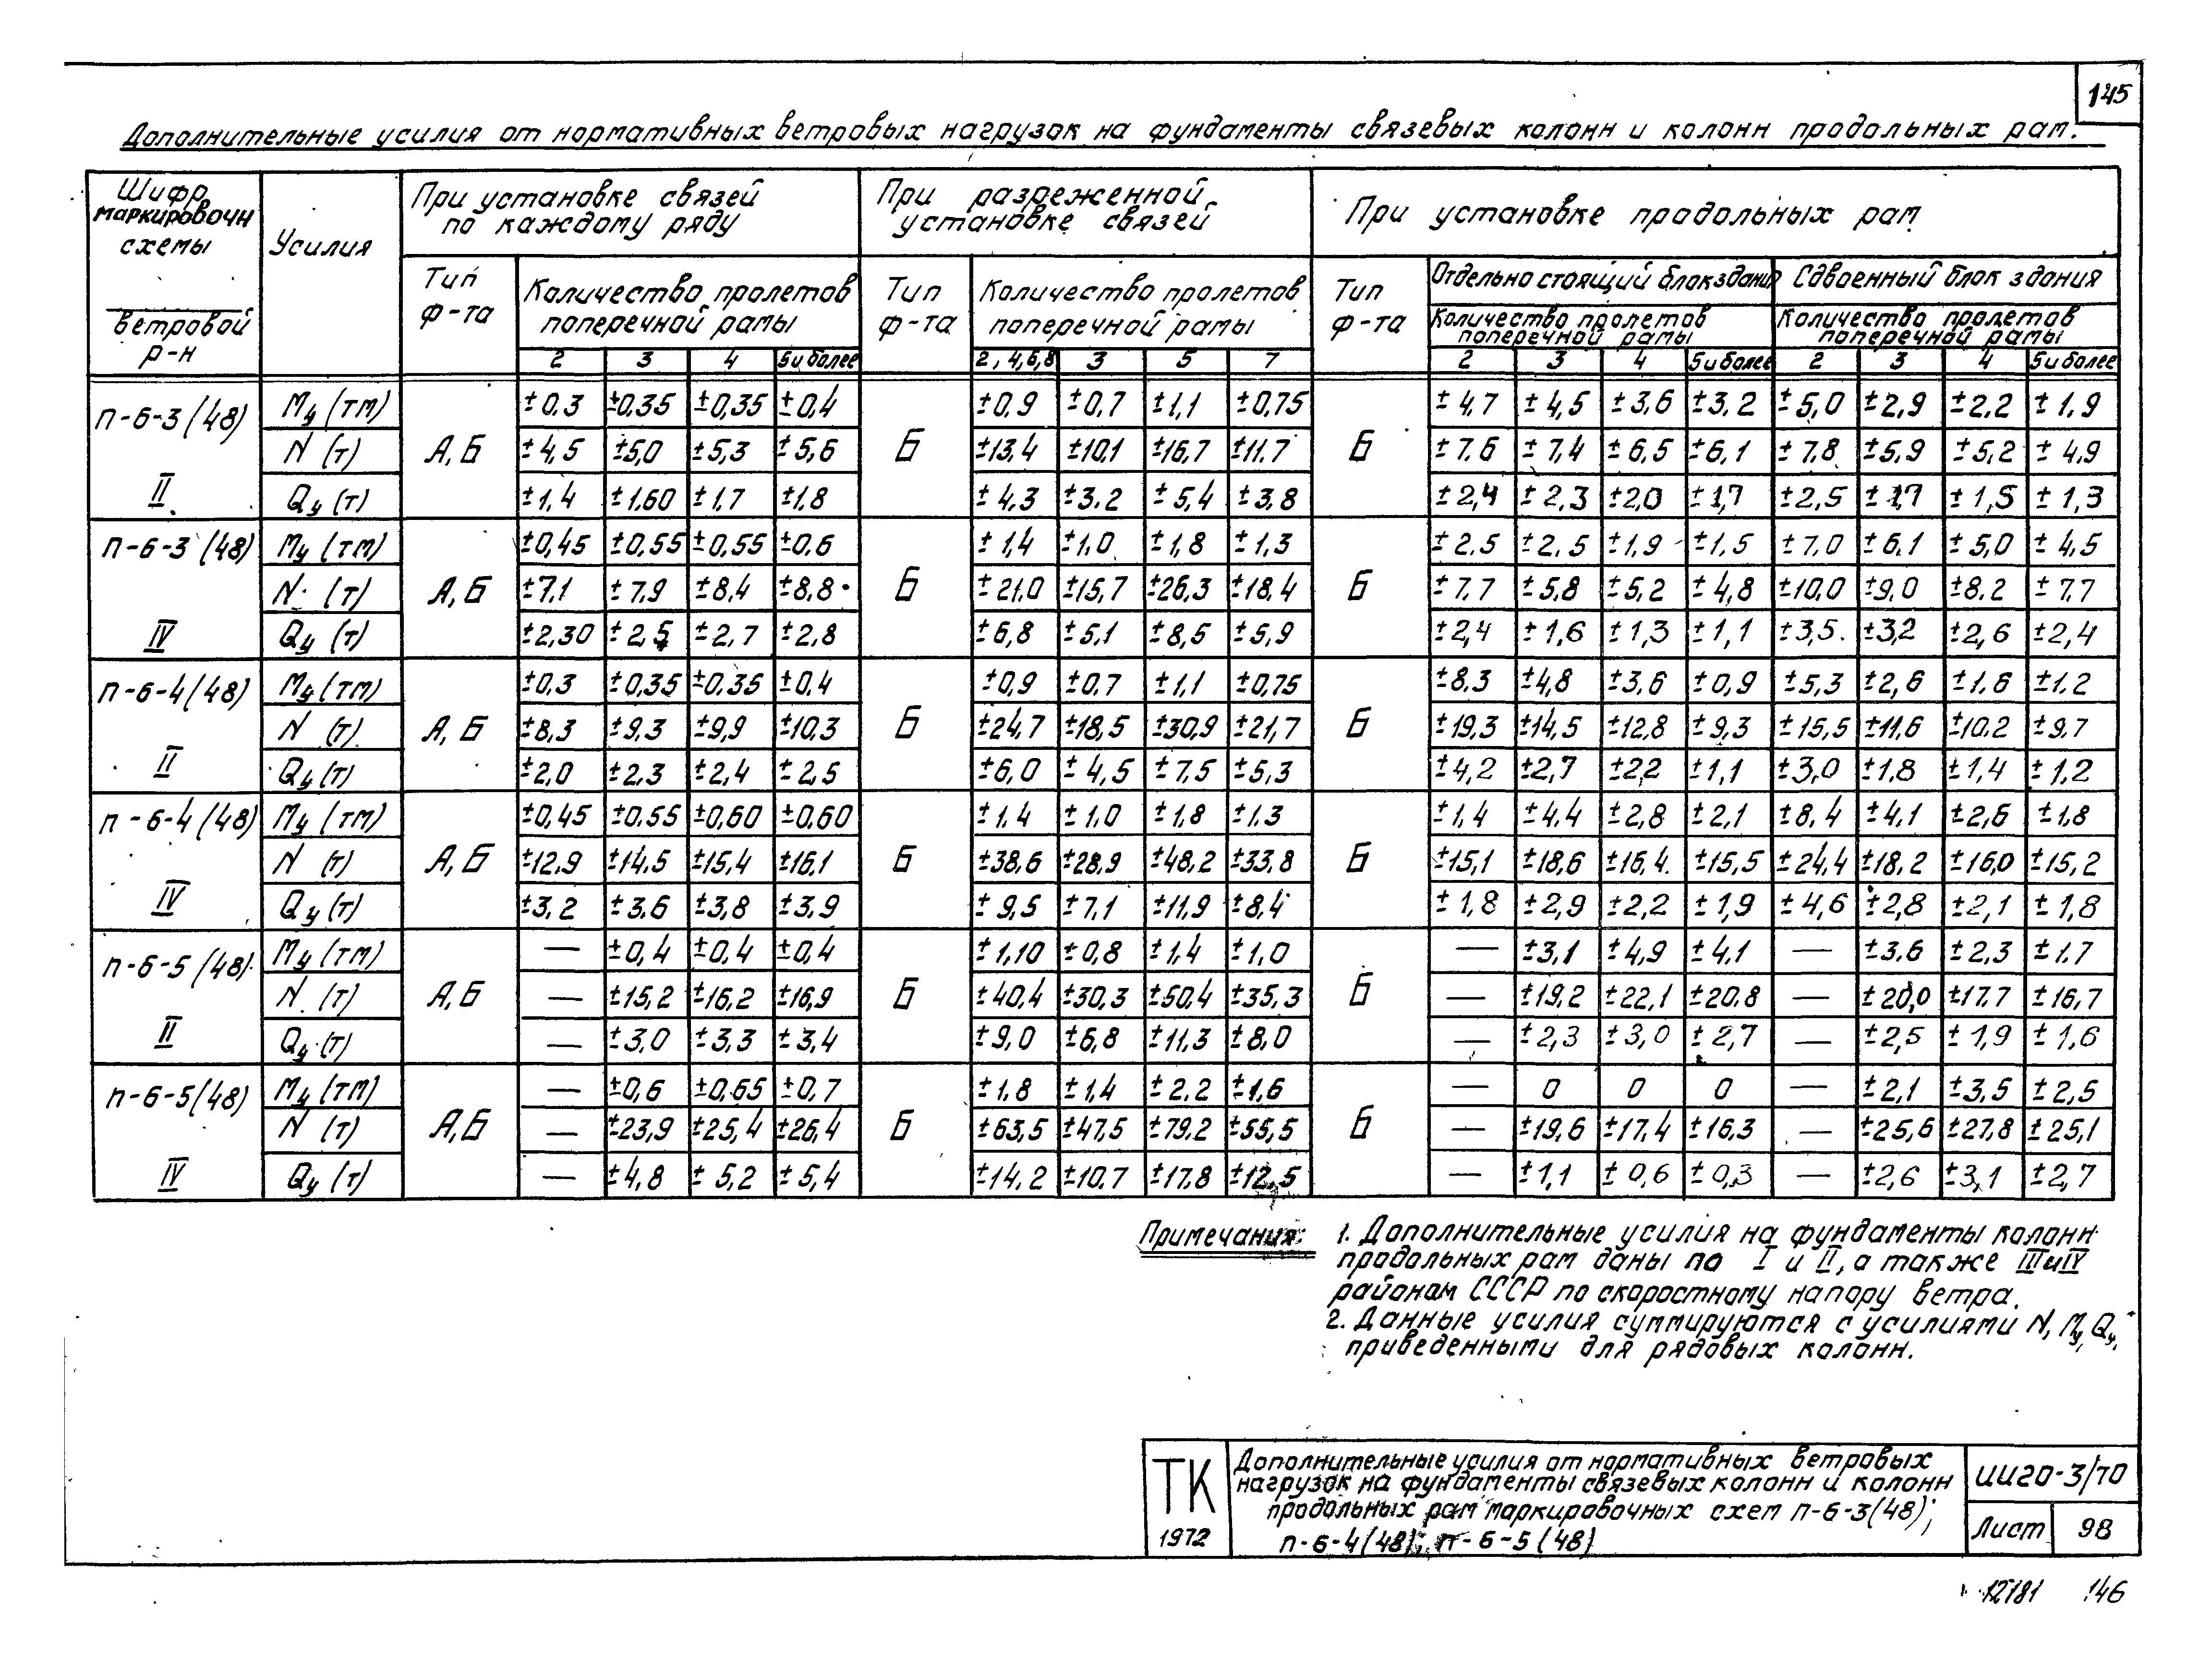 145
Дополнительные усилия от нормативных ветровых нагрузок на фундаменты связевых колонн и колонн продольных рам.
Шифр маркировочн схемы
ветровой р-н
Усилия
При установке связей по каждому ряду
При разреженной установке связей
При установке продольных рам
Тип ф-та
Количество пролетов поперечной рамы
Тип ф-та
Количество пролетов поперечной рамы
Тип ф-та
Отдельно стоящий блок здания
Сдвоенный блок здания
Количество пролетов поперечной рамы
Количество пролетов поперечной рамы
2 3 4 5 и более 2,4,6,8 3 5 7 2 3 4 5 и более 2 3 4 5 и более
п-6-3(48) II
Mу (тм) ±0.3 ±0,35 ±0,35 ±0,4 ±0,9 ±0,7 ±1,1 ±0,75 ±4,7 ±4,5 ±3,6 ±3,2 ±5,0 ±2,9 ±2,2 ±1,9
N (т) А,Б ±4,5 ±5,0 ±5,3 ±5,6 Б ±13,4 ±10,1 ±16,7 ±11,7 Б ±7.6 ±7,4 ±6,5 ±6,1 ±7,8 ±5,9 ±5,2 ±4,9
Qу (т) ±1,4 ±1.60 ±1,7 ±1,8 ±4,3 ±3.2 ±5,4 ±3,8 ±2,4 ±2,3 ±2,0 ±1,7 ±2,5 ±1,7 ±1,5 ±1,3
п-6-3(48) IV
Mу (тм) ±0,45 ±0,55 ±0,55 ±0,6 ±1,4 ±1.0 ±1,8 ±1,3 ±2.5 ±2,5 ±1,9 ±1,5 ±7,0 ±6.1 ±5,0 ±4,5
N (т) А,Б ±7,1 ±7,9 ±8,4 ±8,8 Б ±21,0 ±15,7 ±26,3 ±18,4 Б ±7.7 ±5,8 ±5,2 ±4,8 ±10,0 ±9,0 ±8,2 ±7,7
Qу (т) ±2,30 ±2,5 ±2,7 ±2,8 ±6,8 ±5,1 ±8,5 ±5,9 ±2,4 ±1,6 ±1,3 ±1,1 ±3,5 ±3,2 ±2,6 ±2,4
п-6-4(48) II
Mу (тм) ±0,3 ±0,35 ±0.35 ±0,4 ±0,9 ±0,7 ±1,1 ±0,75 ±8.3 ±4,8 ±3,6 ±0,9 ±5,3 ±2,6 ±1.6 ±1.2
N (т) А,Б ±8,3 ±9,3 ±9,9 ±10,3 Б ±24,7 ±18,5 ±30,9 ±21,7 Б ±19,3 ±14,5 ±12,8 ±9,3 ±15,5 ±11,6 ±10.2 ±9.7
Qу (т) ±2,0 ±2,3 ±2,4 ±2,5 ±6,0 ±4,5 ±7,5 ±5,3 ±4,2 ±2,7 ±2,2 ±1,1 ±3,0 ±1,8 ±1,4 ±1,2
п-6-4(48) IV
Mу (тм) ±0,45 ±0.55 ±0,60 ±0,60 ±1.4 ±1,0 ±1,8 ±1.3 ±1,4 ±4,4 ±2,8 ±2,1 ±8,4 ±4,1 ±2,6 ±1,8
N (т) А,Б ±12,9 ±14,5 ±15,4 ±16,1 Б ±38,6 ±28,9 ±48,2 ±33,8 Б ±15,1 ±18,6 ±16,4 ±15,5 ±24,4 ±18,2 ±16,0 ±15,2
Qу (т) ±3,2 ±3,6 ±3,8 ±3,9 ±9,5 ±7,1 ±11,9 ±8,4 ±1,8 ±2,9 ±2,2 ±1,9 ±4,6 ±2,8 ±2,1 ±1,8
п-6-5(48) II
Mу (тм) — ±0,4 ±0,4 ±0,4 ±1,10 ±0,8 ±1,4 ±1,0 — ±3,1 ±4,9 ±4.1 — ±3.6 ±2.3 ±1.7
N (т) А,Б — ±15,2 ±16,2 ±16,9 Б ±40,4 ±30,3 ±50,4 ±35,3 Б — ±19,2 ±22,1 ±20.8 — ±20,0 ±17.7 ±16,7
Qу (т) — ±3,0 ±3,3 ±3,4 ±9,0 ±6,8 ±11,3 ±8,0 — ±2,3 ±3,0 ±2,7 — ±2,5 ±1,9 ±1,6
п-6-5(48) IV
Mу (тм) — ±0,6 ±0,65 ±0,7 ±1,8 ±1,4 ±2.2 ±1,6 — 0 0 0 — ±2,1 ±3,5 ±2,5
N (т) А,Б — ±23,9 ±25,4 ±26,4 Б ±63,5 ±47,5 ±79.2 ±55,5 Б — ±19,6 ±17,4 ±16,3 — ±25,6 ±27,8 ±25,1
Qу (т) — ±4,8 ±5,2 ±5,4 ±14,2 ±10,7 ±17,8 ±12,5 — ±1,1 ±0,6 ±0,3 — ±2,6 ±3,1 ±2,7
Примечания: 1. Дополнительные усилия на фундаменты колонн
продольных рам даны по I и II, а также III и IV
районам СССР по скоростному напору ветра.
2. Данные усилия суммируются с усилиями N, Mу, Qу,
приведенными для рядовых колонн.
ТК
1972
Дополнительные усилия от нормативных ветровых
нагрузок на фундаменты связевых колонн и колонн
продольных рам маркировочных схем п-6-3(48);
п-6-4(48); п-6-5(48)
ИИ20-3/70
Лист 98
12181 146